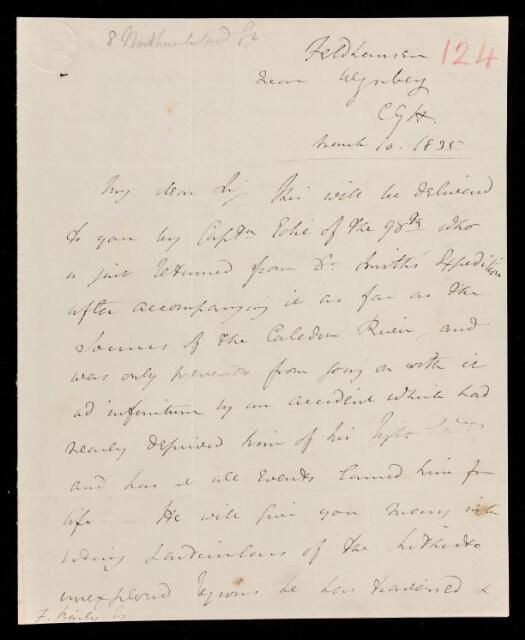 8 Northumberland St
Feldhausen
124
near Wynberg
CGH.
March 10. 1835.
My dear Sir, This will be delivered
to you by Captn Edie of the 98th who
is just returned from Dr Smith's Expedition
after accompanying it as far as the
Sources of the Caledon River, and
was only prevented from going on with it
ad infinitum by an accident which had
nearly deprived him of his right
and has at all events lamed him for
life. He will give you many inte-
resting particulars of the hitherto
unexplored regions he has traversed &
F. Baily Esq